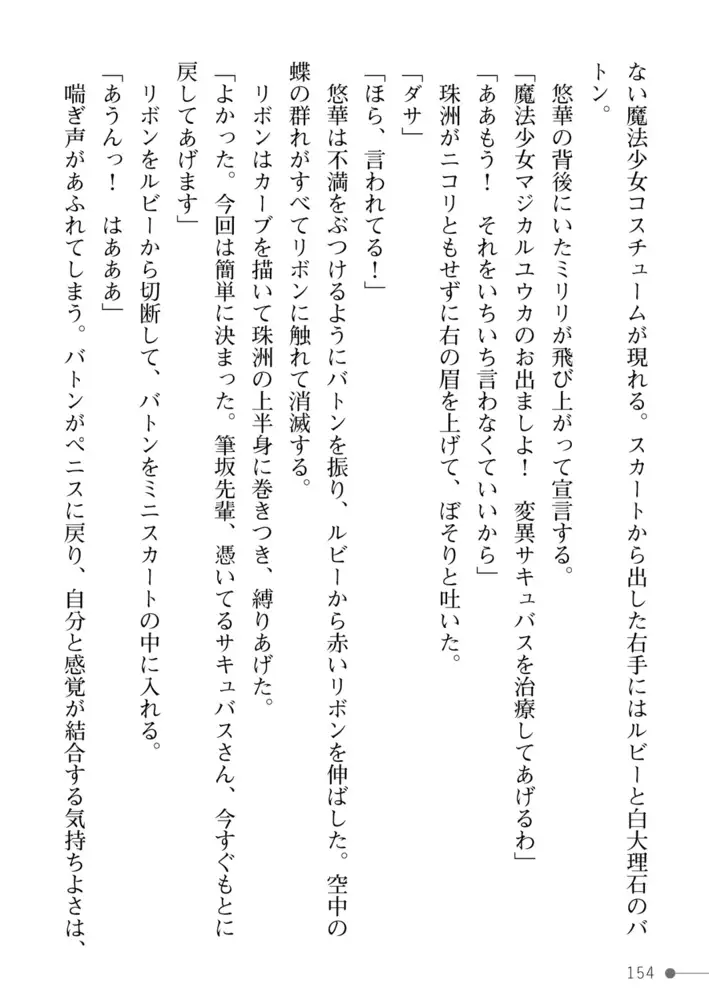 ない魔法少女コスチュームが現れる。スカートから出した右手にはルビーと白大理石のバ
トン。
悠華の背後にいたミリリが飛び上がって宣言する。
「魔法少女マジカルユウカのお出ましよ！　変異サキュバスを治療してあげるわ」
「ああもう！　それをいちいち言わなくていいから」
珠洲がニコリともせずに右の眉を上げて、ぼそりと吐いた。
「ダサ」
「ほら、言われてる！」
悠華は不満をぶつけるようにバトンを振り、ルビーから赤いリボンを伸ばした。空中の
蝶の群れがすべてリボンに触れて消滅する。
リボンはカーブを描いて珠洲の上半身に巻きつき、縛りあげた。
「よかった。今回は簡単に決まった。筆坂先輩、憑いてるサキュバスさん、今すぐもとに
戻してあげます」
リボンをルビーから切断して、バトンをミニスカートの中に入れる。
「あうんっ！　はあああ」
喘ぎ声があふれてしまう。バトンがペニスに戻り、自分と感覚が結合する気持ちよさは、
154